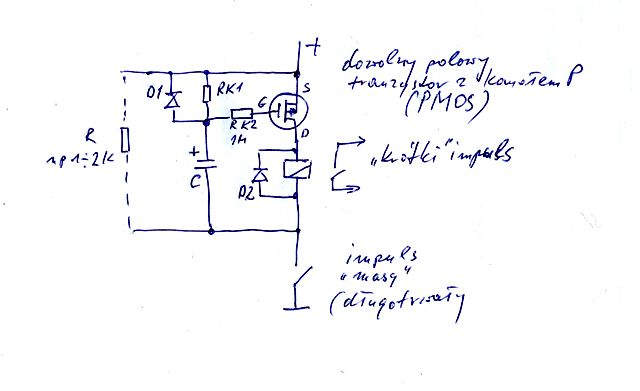 +
dowolny polowy
tranzystor z kanałem P
(PMOS)
D1
RK1
S
G
RK2
1M
D
R
np 1÷2K
+
C
D2
„krótki" impuls
impuls
„masą"
(długotrwały